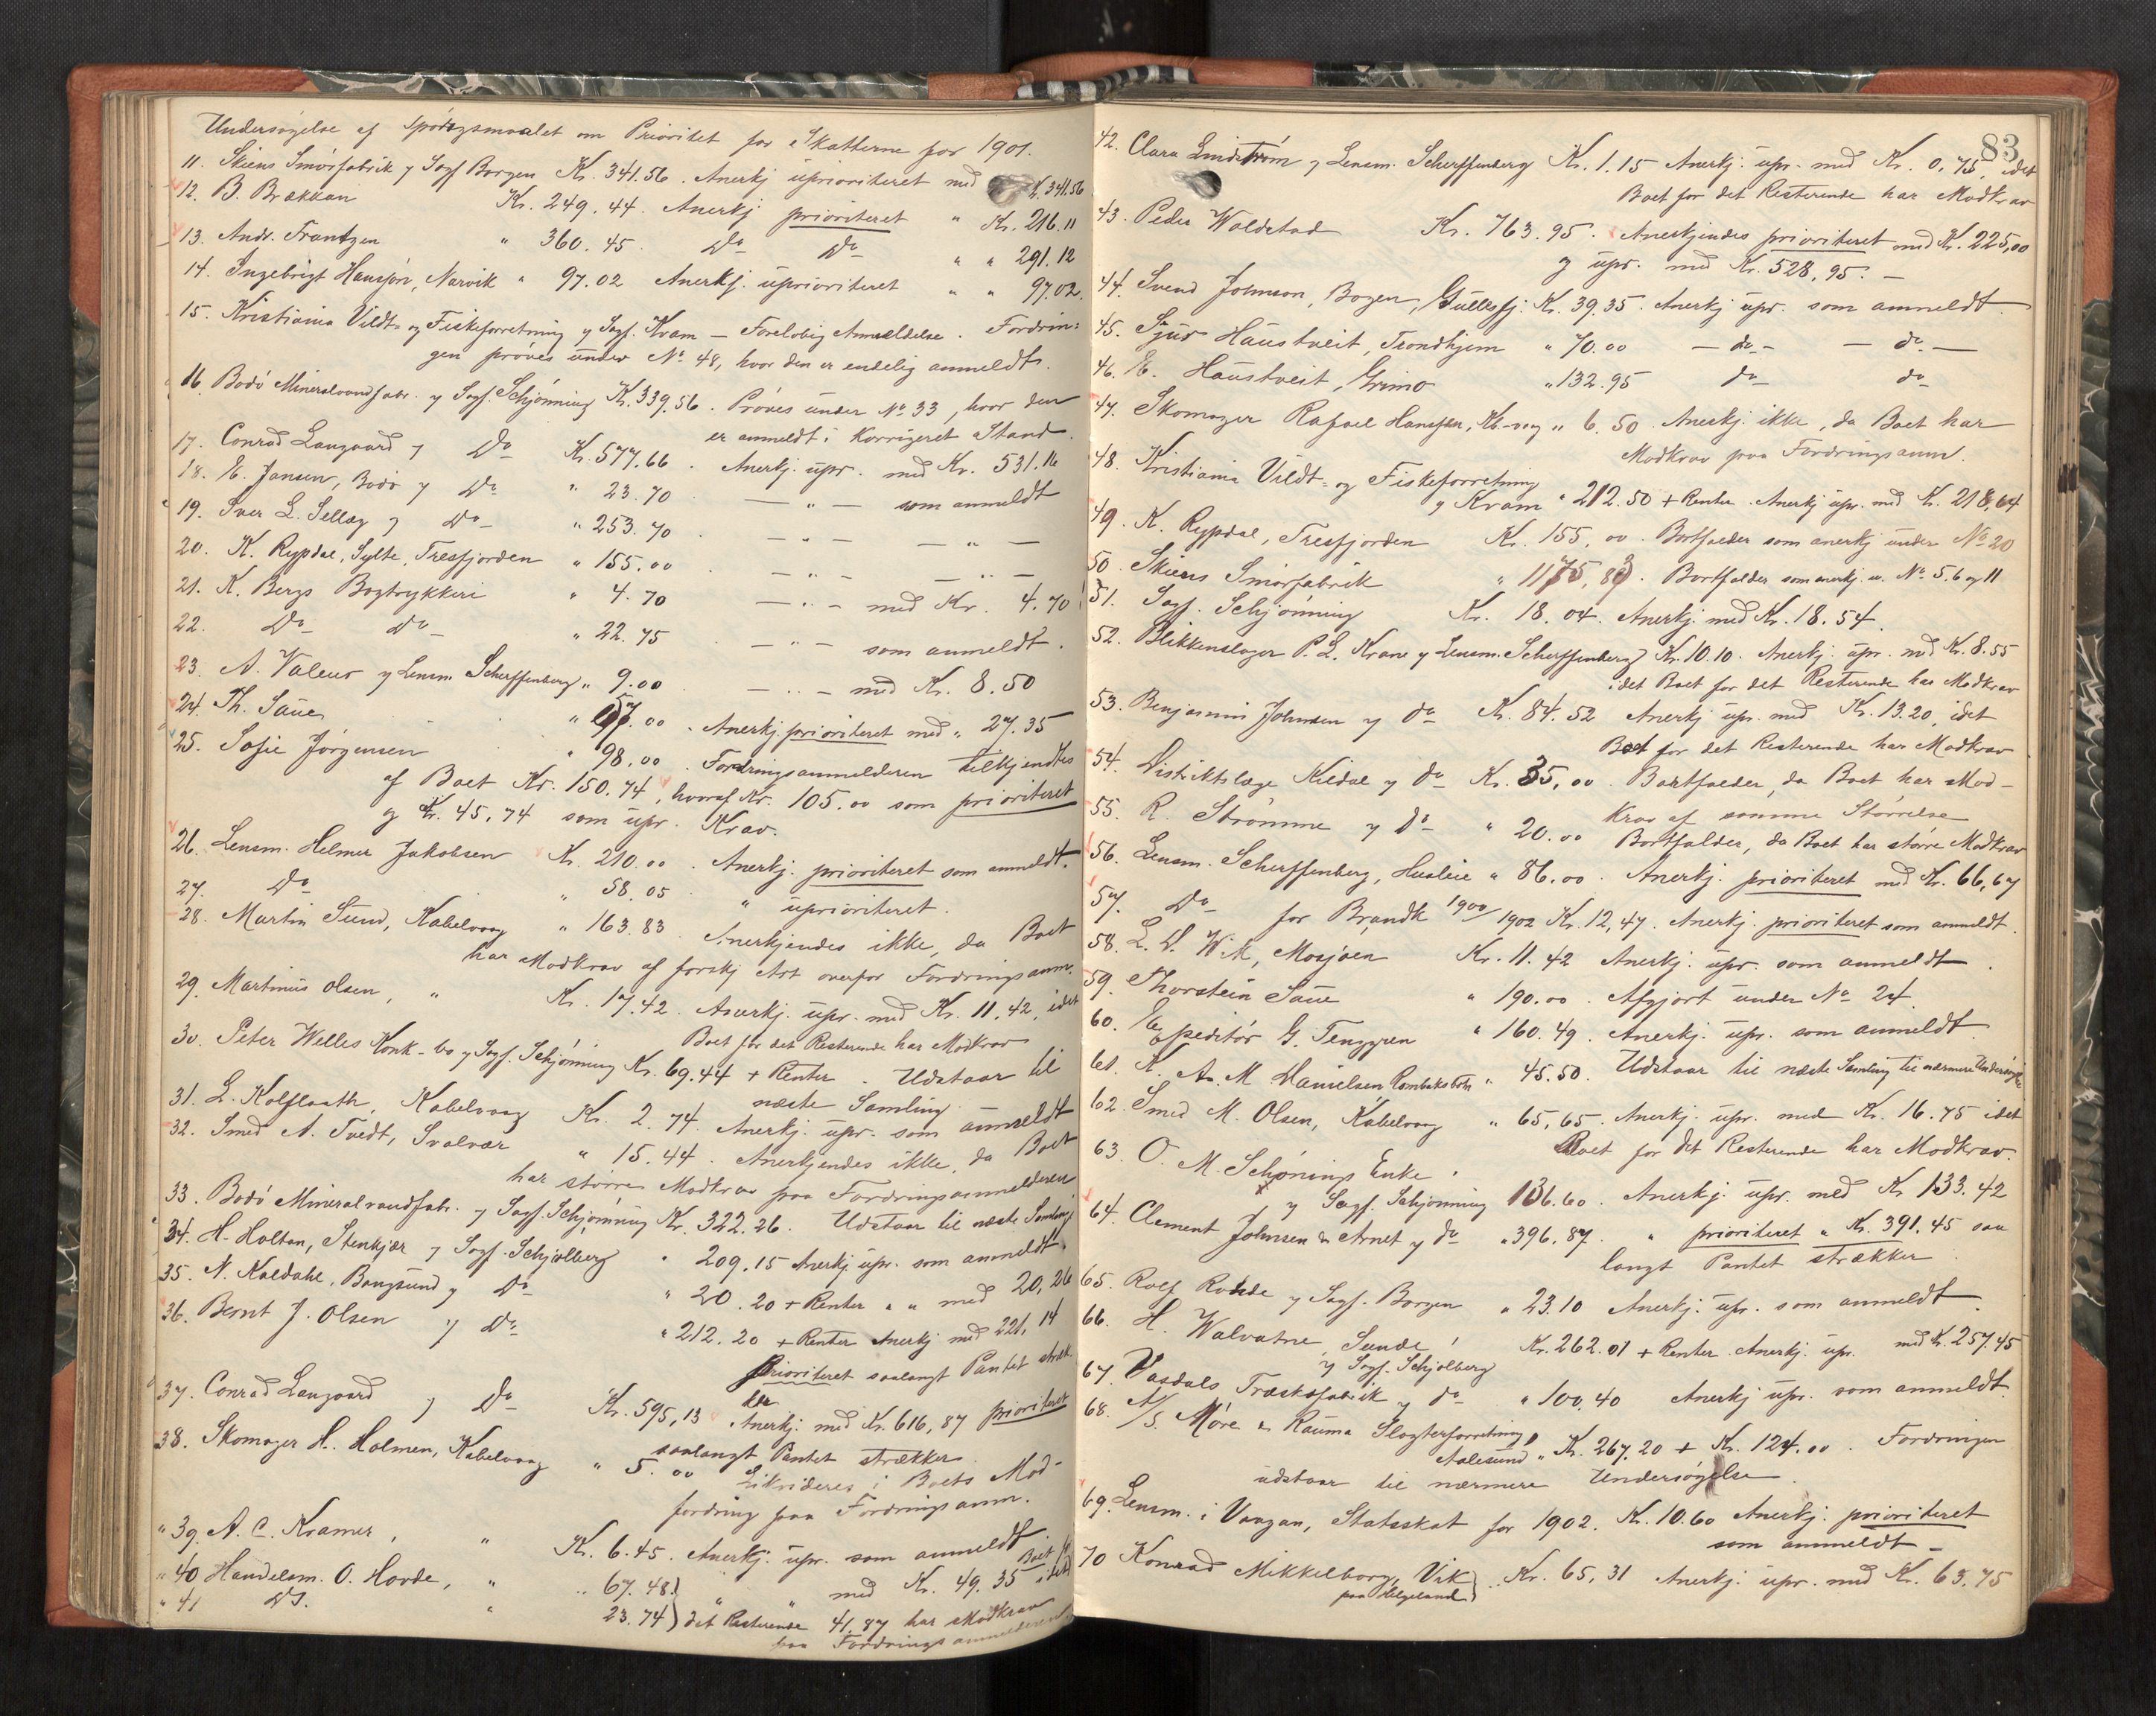 Undersøgelse af Spørgsmaalet om Prioritet for Skatterne for 1901.
11. Skiens Smørfabrik v Sagf Borgen Kr. 341.56. Anerkj uprioriteret med Kr. 341.56
12. B. Brækkan Kr. 249.44. Anerkj prioriteret " Kr. 216.11
13. Andr. Frantzen " 360.45. Do Do " " 291.12
14. Ingebrigt Hansjøn, Narvik " 97.02 Anerkj. uprioriteret " " 97.02.
15. Kristiania Vildt- og Fiskeforretning v Sagf. Kvam – Foreløbig Anmeldelse. Fordrin-
gen prøves under No. 48, hvor den er endelig anmeldt.
16. Bodø Mineralvandfabr. v Sagf. Schjønning Kr. 339.56. Prøves under No. 33, hvor den
er anmeldt i korrigeret Stand.
17. Conrad Langaard v Do Kr. 577.66. Anerkj. upr. med Kr. 531.16
18. E. Jansen, Bodø v Do " 23.70 — " — som anmeldt
19. Iver L. Sellæg v Do " 253.70. — " — — " —
20. K. Rypdal, Sylte, Tresfjorden " 155.00. — " — — " —
21. K. Bergs Bogtrykkeri " 4.70 — " — med Kr. 4.70
22. Do Do " 22.75 — " — som anmeldt.
23. A. Valeur v Lensm. Scherffenberg " 9.00 — " — med Kr. 8.50
24. Th. Saue " .00. Anerkj. prioriteret med " 27.35
25. Sofie Jørgensen " 98.00. Fordringsanmelderen tilkjendtes
af Boet Kr. 150.74, hvoraf Kr. 105.00 som prioriteret
og Kr. 45.74 som upr. Krav.
26. Lensm. Helmer Jakobsen Kr. 210.00. Anerkj. prioriteret som anmeldt.
27. Do " 58.05 " uprioriteret.
28. Martin Sund, Kabelvaag " 163.83 Anerkjendes ikke, da Boet
har Modkrav af forskj Art overfor Fordringsanm.
29. Martinus Olsen, " Kr. 17.42. Anerkj. upr. med Kr. 11.42, idet
Boet for det Resterende har Modkrav
30. Peter Welles Konk-bo v Sagf. Schjønning Kr. 69.44 + Renter. Udstaar til
næste Samling.
31. L. Kolflaath, Kabelvaag Kr. 2.74. Anerkj. upr. som anmeldt
32. Smed A. Tvedt, Svolvær " 15.44. Anerkjendes ikke, da Boet
har større Modkrav paa Fordringsanmelderen
33. Bodø Mineralvandfabr. v Sagf. Schjønning Kr. 322.26. Udstaar til næste Samling
34. H. Holtan, Stenkjær v Sagf. Schjølberg " 209.15 Anerkj upr. som anmeldt.
35. N. Kaldahl, Bangsund v Do " 20.20 + Renter " " med 20,26
36. Bernt J. Olsen v Do " 212.20 + Renter Anerkj med 221,14
prioriteret saalangt Pantet stræk-
ker
37. Conrad Langaard v Do Kr. 595,13 Anerkj. med Kr. 616,87 prioriteret
saalangt Pantet strækker.
38. Skomager H. Holmen, Kabelvaag " 5.00 Likvideres i Boets Mod-
fordring paa Fordringsanm.
" 39. A. C. Kramer, " Kr. 6.45. Anerkj. upr. som anmeldt
" 40 Handelsm. O. Hovde, " " 67.48 } " " med Kr. 49.35 idet Boet for
" 41 Do. " 23.74 } det Resterende 41.87 har Modkrav
paa Fordringsanmelderen
83
42. Clara Lindstrøm v Lensm. Scherffenberg Kr. 1.15 Anerkj. upr. med Kr. 0.75, idet
Boet for det Resterende har Modkrav
43. Peder Woldstad Kr. 763.95. Anerkjendes prioriteret med Kr. 225,00
og upr. med Kr. 528,95. —
44. Svend Johnson, Bogen, Gullesfj. Kr. 39.35. Anerkj upr. som anmeldt.
45. Sjur Haustveit, Trondhjem " 70.00 — do — — do —
46. E. Haustveit, Grimo " 132.95 do do
47. Skomager Rafael Hanssen, Kb-vaag " 6.50. Anerkj. ikke, da Boet har
Modkrav paa Fordringsanm.
48. Kristiania Vildt- og Fiskeforretning
v Kvam " 212.50 + Renter. Anerkj upr. med Kr. 218,64
49. K. Rypdal, Tresfjorden Kr. 155,00. Bortfalder som anerkj under No 20
50. Skiens Smørfabrik " 1175,83. Bortfalder som anerkj. u. No. 5.6 og 11
51. Sagf. Schjønning Kr. 18.04. Anerkj. med Kr. 18.54.
52. Blikkenslager P. L. Krane v Lensm. Scherffenberg Kr. 10.10. Anerkj. upr. med Kr. 8.55
idet Boet for det Resterende har Modkrav
53. Benjamin Johnsen v do Kr. 84.52 Anerkj upr. med Kr. 13.20, idet
Boet for det Resterende har Modkrav
54. Distriktslæge Kildal v do Kr. 35,00. Bortfalder, da Boet har Mod-
krav af samme Størrelse
55. R. Strømme v do " 20.00 Bortfalder, da Boet har større Modkrav
56. Lensm. Scherffenberg, Husleie " 86.00. Anerkj. prioriteret med Kr. 66,67
57. Do for Brandk 1900/1902 Kr. 12,47. Anerkj. prioriteret som anmeldt.
58. L. D. Wik, Mosjøen Kr. 11.42 Anerkj. upr. som anmeldt.
59. Thorstein Saue " 190.00. Afgjort under No 24.
60. Expeditør G. Tenggren " 160.49. Anerkj. upr. som anmeldt
61. K. A. M. Danielsen Rombaksbotn " 45.50. Udstaar til næste Samling til nærmere Undersøgelse
62. Smed M. Olsen, Kabelvaag " 65,65. Anerkj. upr. med Kr. 16.75 idet
Boet for det Resterende har Modkrav.
63. O. M. Schønings Enke
v Sagf. Schjønning 136.60. Anerkj. upr. med Kr 133.42
64. Clement Johnsen & Arnet v do " 396.87. " prioriteret " Kr. 391.45 saa
langt Pantet strækker.
65. Rolf Rohde v Sagf. Borgen " 23.10 Anerkj. upr. som anmeldt.
66. H. Walvatne, Sunde,
v Sagf. Schjølberg Kr. 262.01 + Renter. Anerkj. upr. med Kr. 257.45
67. Vasdals Træskofabrik v do " 100.40 Anerkj upr. som anmeldt.
68. A/S. Møre & Rauma Slagterforretning,
Aalesund " Kr. 267.20 + Kr. 124.00. Fordringen
udstaar til nærmere Undersøgelse.
69. Lensm. i Vaagan, Statsskat for 1902. Kr. 10.60 Anerkj. prioriteret
som anmeldt –
70 Konrad Mikkelborg, Vik
paa Helgeland } Kr. 65,31 Anerkj. upr. med Kr. 63.75